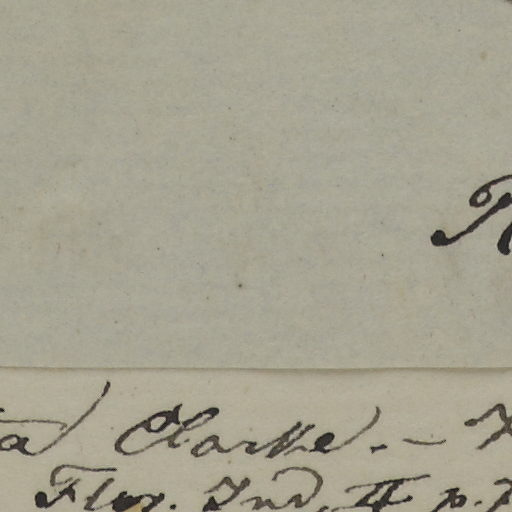 Clarke. –
Flor. Ind. II p.